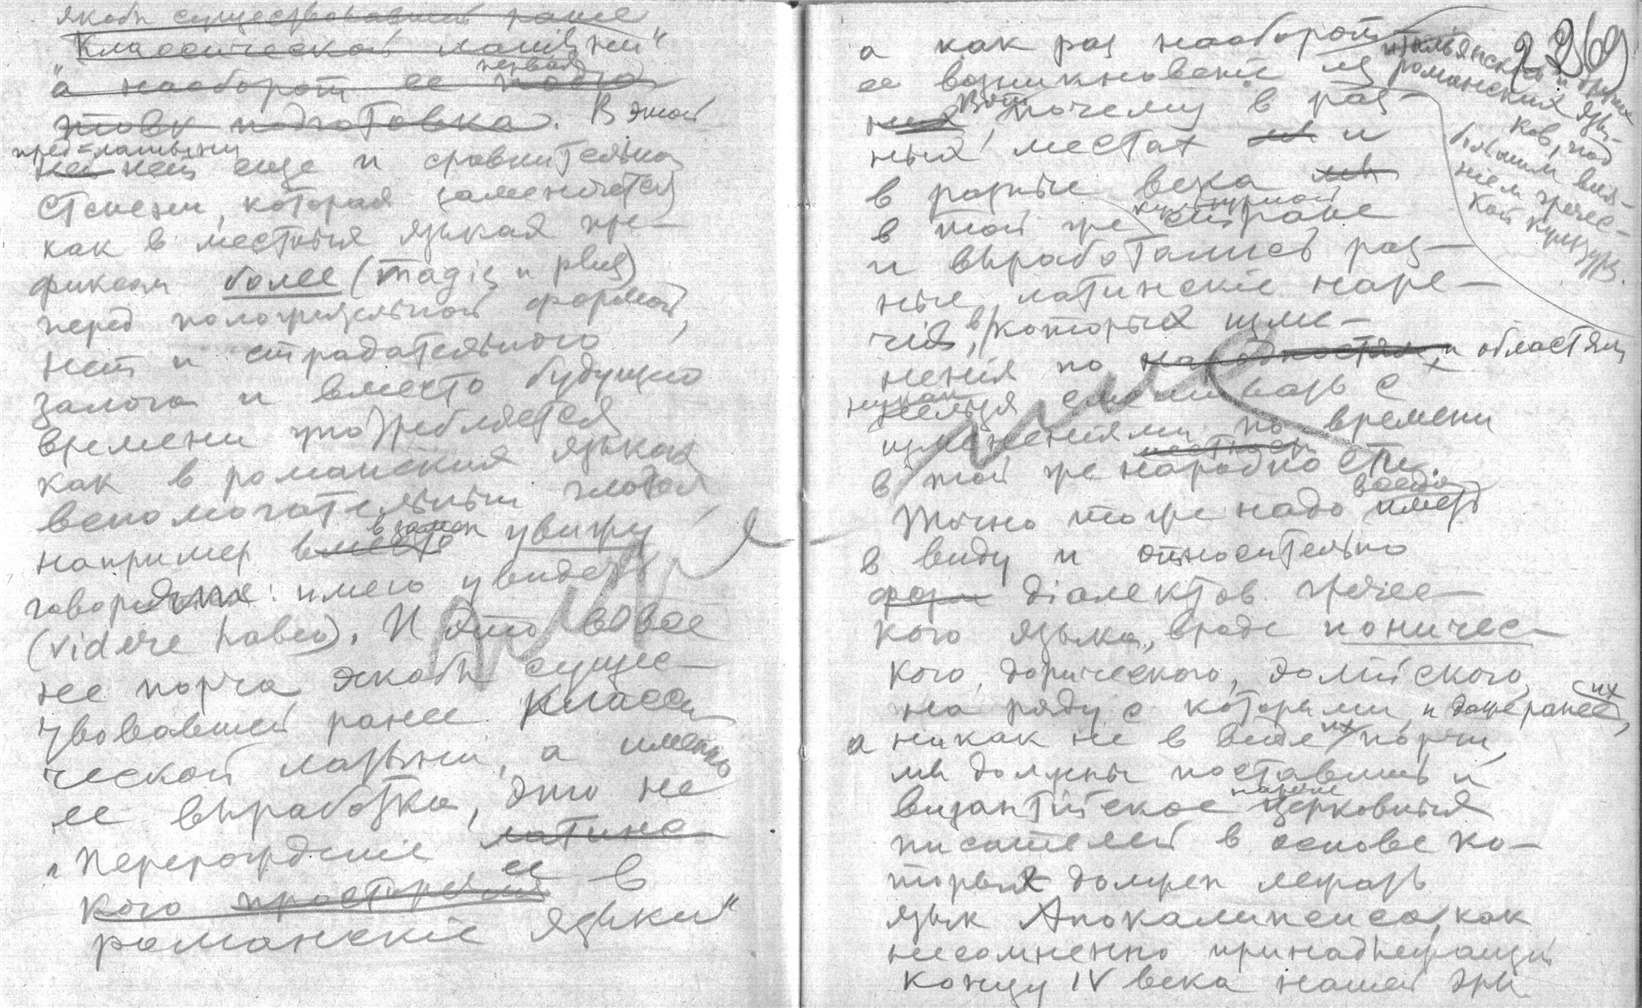 якобы существовавшей ранее
"Классической латыни"
"а наоборот ее первая
подготовка. В этой
пред-латыни
нет еще и сравнительной
степени, которая заменяется
как в местных языках пре-
фиксом более (magis и plus)
перед положительной формой,
нет и страдательного
залога и вместо будущего
времени употребляется
как в романских языках
вспомогательный глагол,
например взамен увижу
говорится: имею увидеть
(videre habeo). И это вовсе
не порча якобы сущес-
твовавшей ранее класси-
ческой латыни, а именно
ее выработка, это не
"перерождение латинс-
кого ее в
романскіе языки"
а как раз наоборот
ее возникновеніе из итальянских и других
романских язы-
ков, под
большим влія-
нием гречес-
кой культуры.
Вот почему в раз-
ных местах и
в разные века
в той же культурной стране
и выработались раз-
ные латинскіе наре-
чія, в которых изме-
ненія по народностям и областям
никак нельзя смешивать с
измененіями по времени
в той же местной народности.
Точно тоже надо всегда иметь
в виду и относительно
форм діалектов гречес-
кого языка, вроде іоничес-
кого, дорического, эолійского,
на ряду с которыми, и даже ранее их,
а никак не в виде их порчи,
мы должны поставить и
византійское наречіе церковных
писателей в основе ко-
торых должен лежать
язык Апокалипсиса, как
несомненно принадлежащій
концу IV века нашей эры